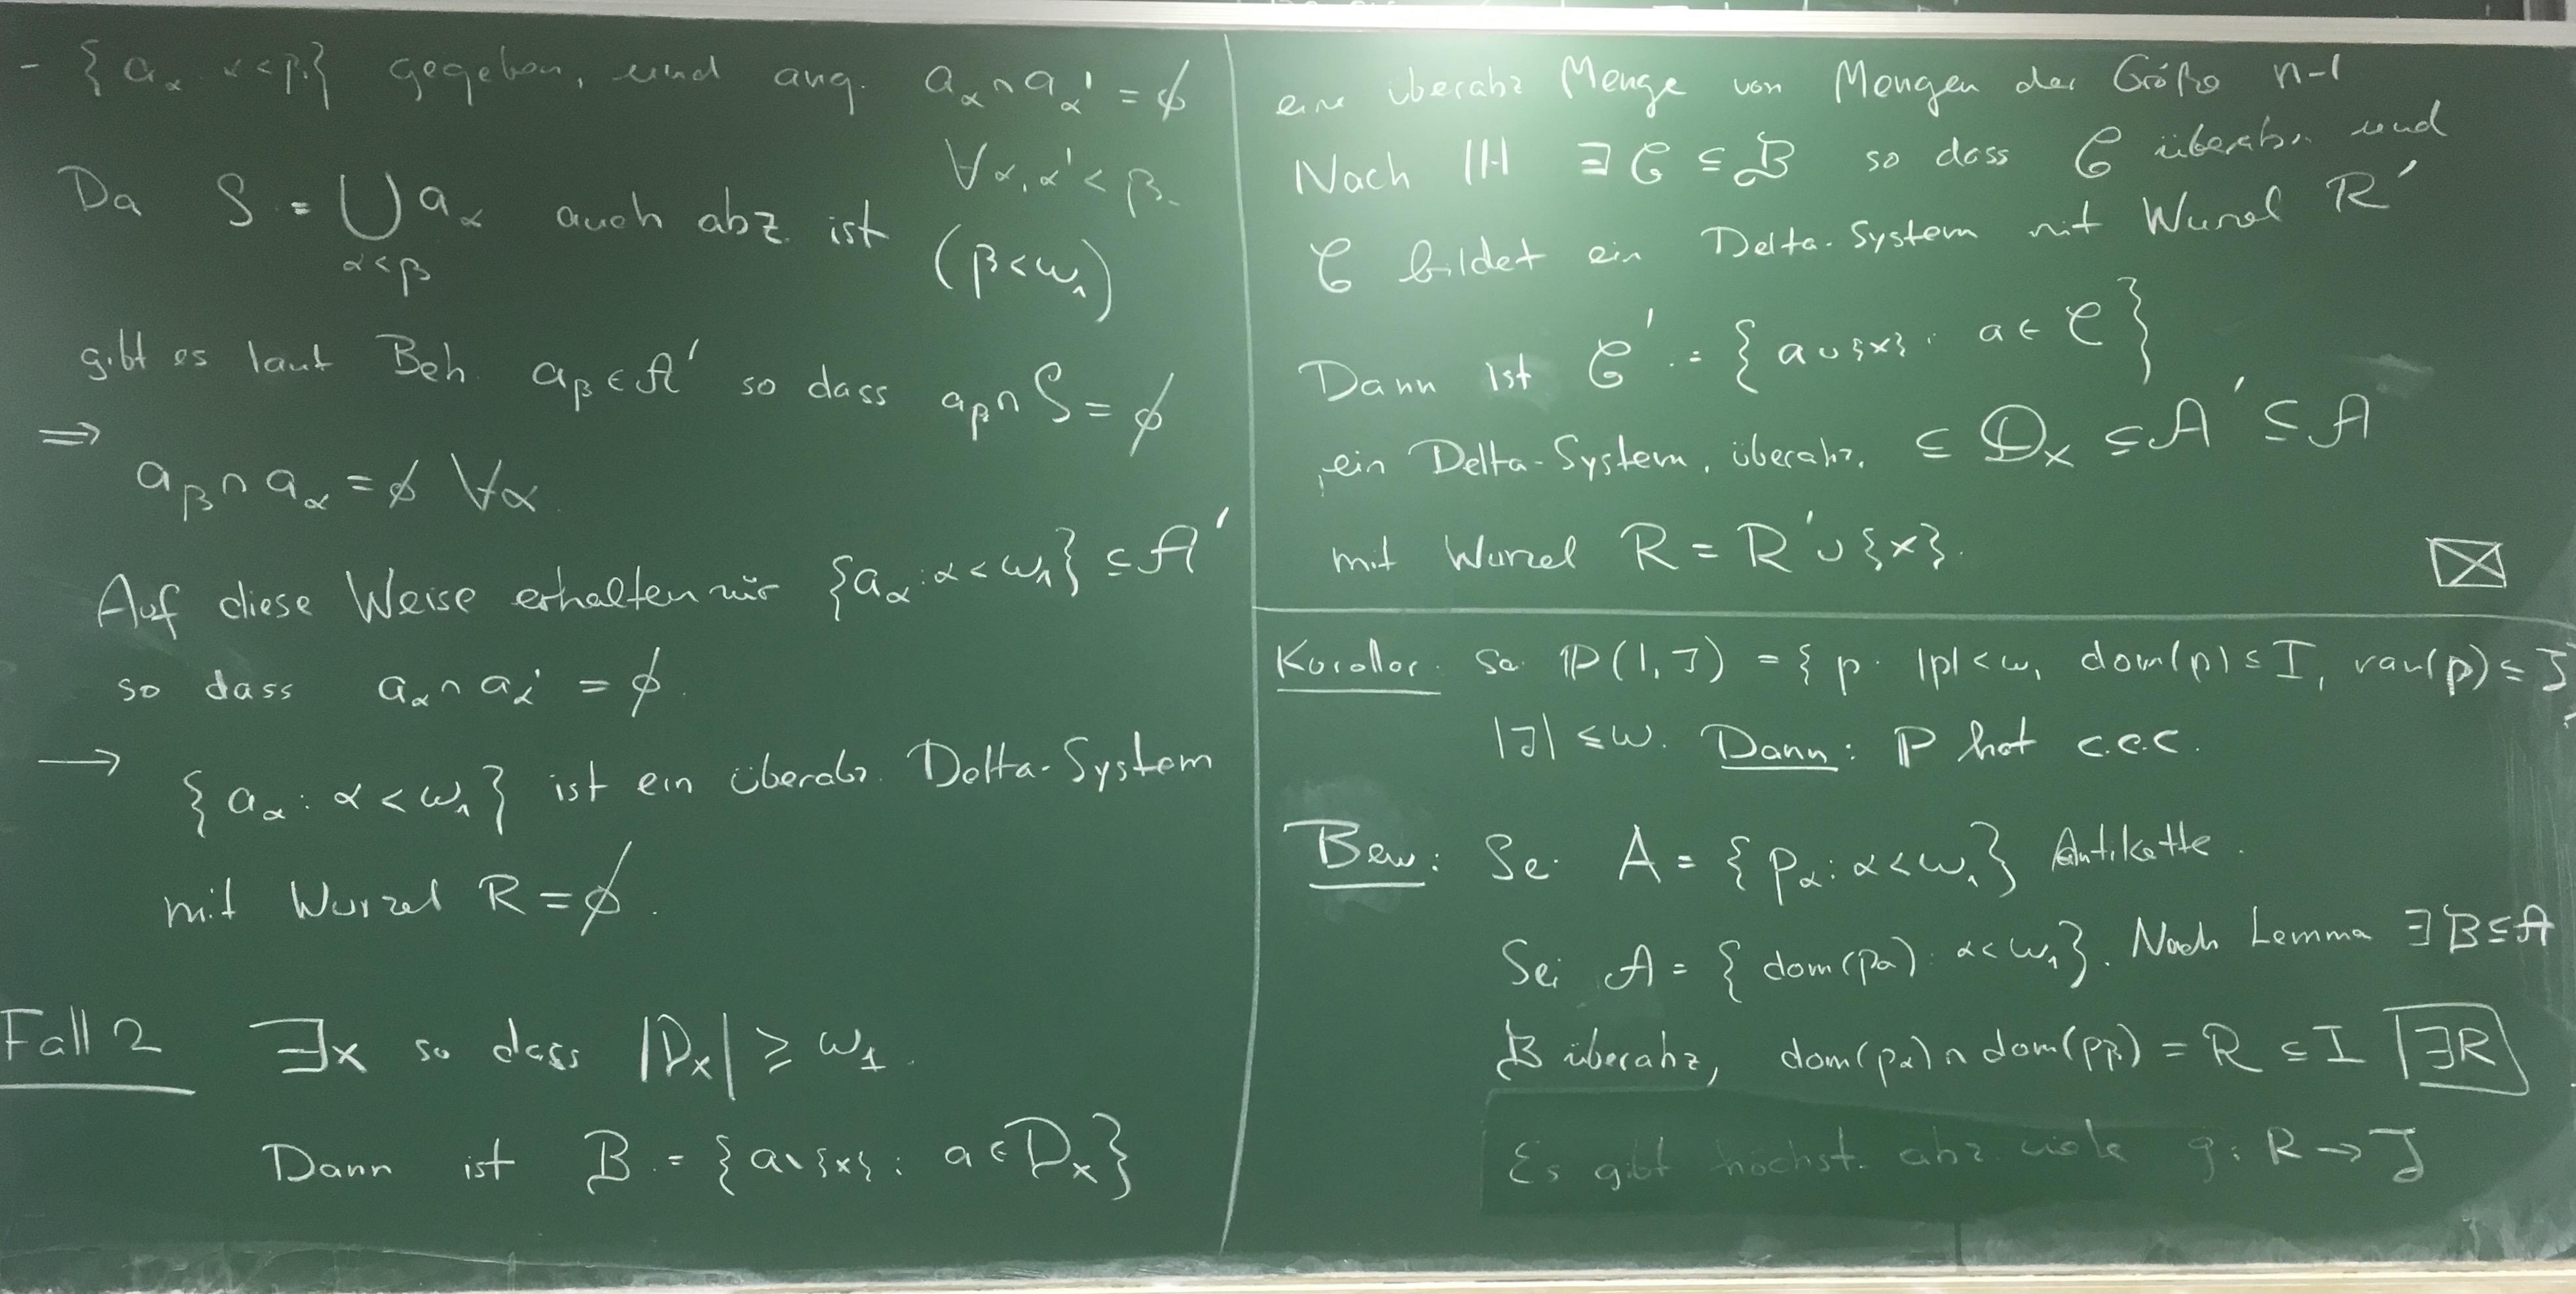 - {a_α : α<β} gegeben, und ang. a_α ∩ a_α' = ∅
∀α, α' < β.
Da S := ⋃_{α<β} a_α auch abz. ist (β<ω₁)
gibt es laut Beh. a_β ∈ 𝒜' so dass a_β ∩ S = ∅
⇒ a_β ∩ a_α = ∅ ∀α.
Auf diese Weise erhalten wir {a_α : α<ω₁} ⊆ 𝒜'
so dass a_α ∩ a_α' = ∅.
→ {a_α : α<ω₁} ist ein überabz. Delta-System
mit Wurzel R = ∅.
Fall 2 ∃x so dass |D_x| ≥ ω₁.
Dann ist ℬ := {a∖{x} : a ∈ D_x}
eine überabz Menge von Mengen der Größe n-1
Nach IH ∃ 𝒞 ⊆ ℬ so dass 𝒞 überabz. und
𝒞 bildet ein Delta-System mit Wurzel R'
Dann ist 𝒞' := {a∪{x} : a ∈ 𝒞}
ein Delta-System, überabz. ⊆ D_x ⊆ 𝒜' ⊆ 𝒜
mit Wurzel R = R' ∪ {x}.
Korollar: Sei ℙ(I,J) = {p : |p|<ω, dom(p) ⊆ I, ran(p) ⊆ J}
|J| ≤ ω. Dann: ℙ hat c.c.c.
Bew: Sei A = {p_α : α<ω₁} Antikette.
Sei 𝒜 = {dom(p_α) : α<ω₁}. Nach Lemma ∃ ℬ ⊆ 𝒜
ℬ überabz, dom(p_α) ∩ dom(p_β) = R ⊆ I ∃R
Es gibt höchst. abz. viele g: R → J